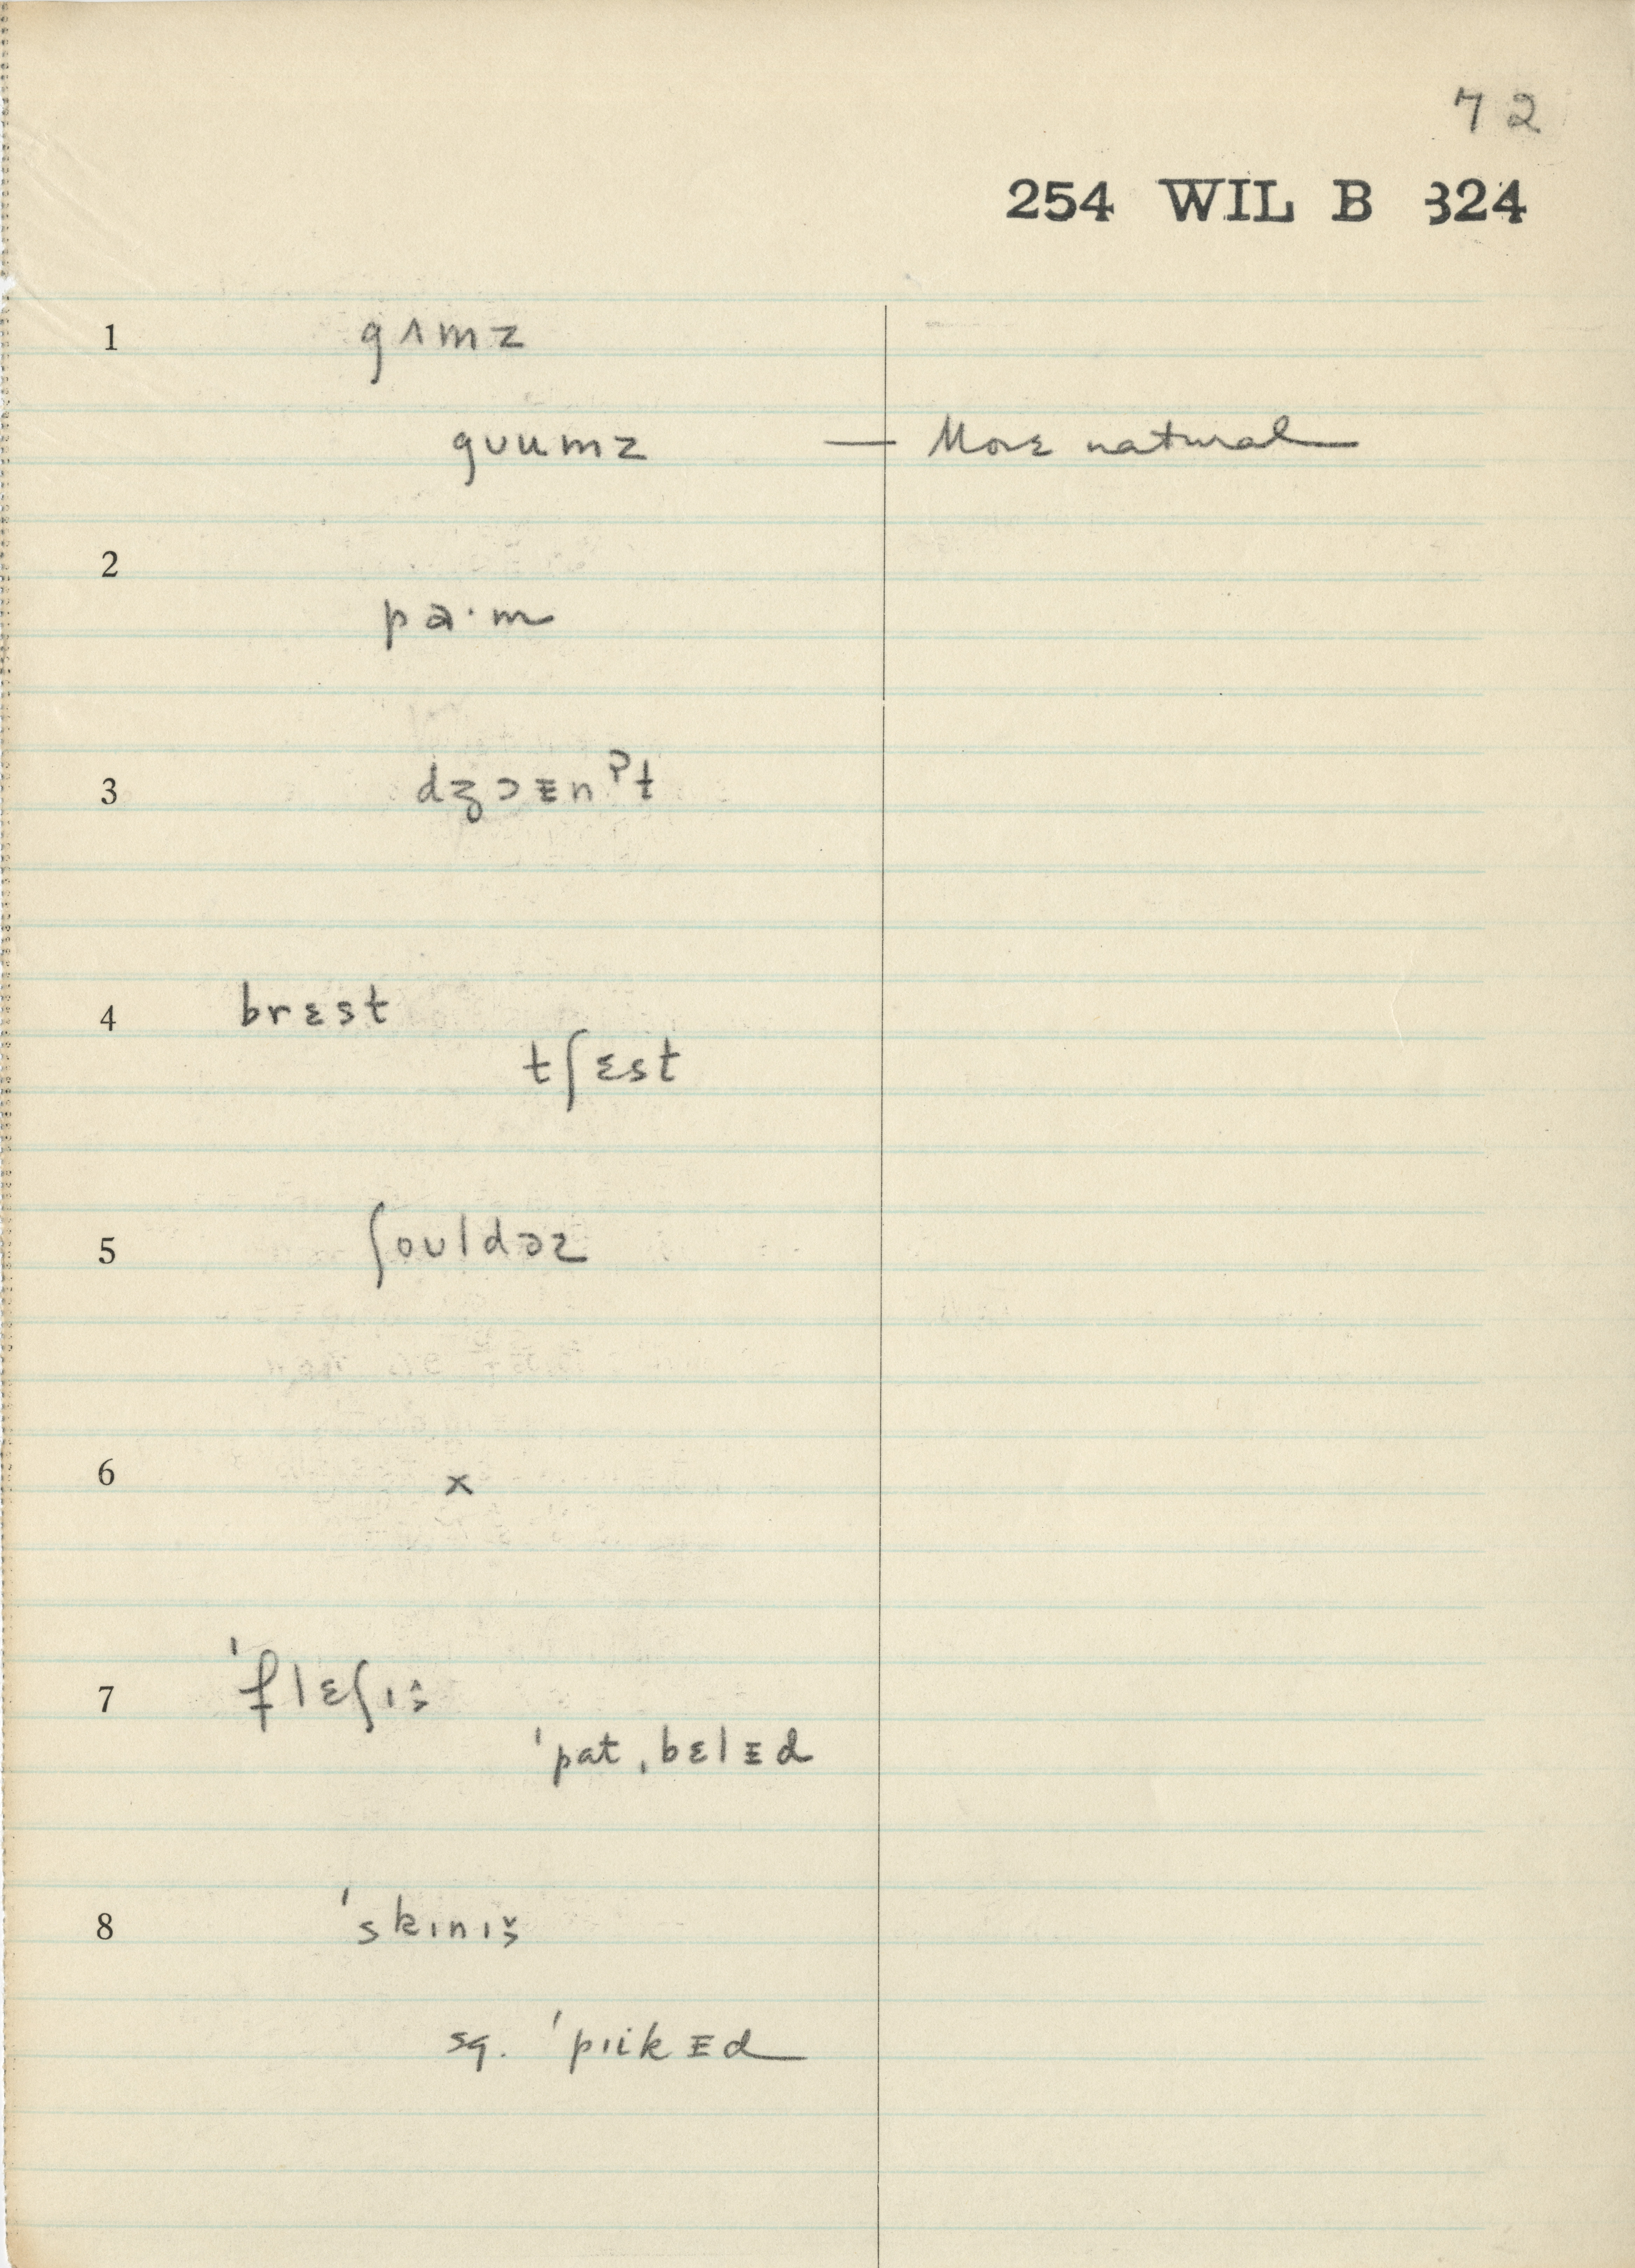 72
254 WIL B 324
1 gʌmz
gʊumz — More natural
2 pa·m
3 dʒɔᴇnˀt
4 brɛst
tʃɛst
5 ʃoʊldəz
6 x
7 ˈflɛʃɪš
ˈpat ˌbɛlᴇd
8 ˈskɪnɪš
sq. ˈpɪikᴇd